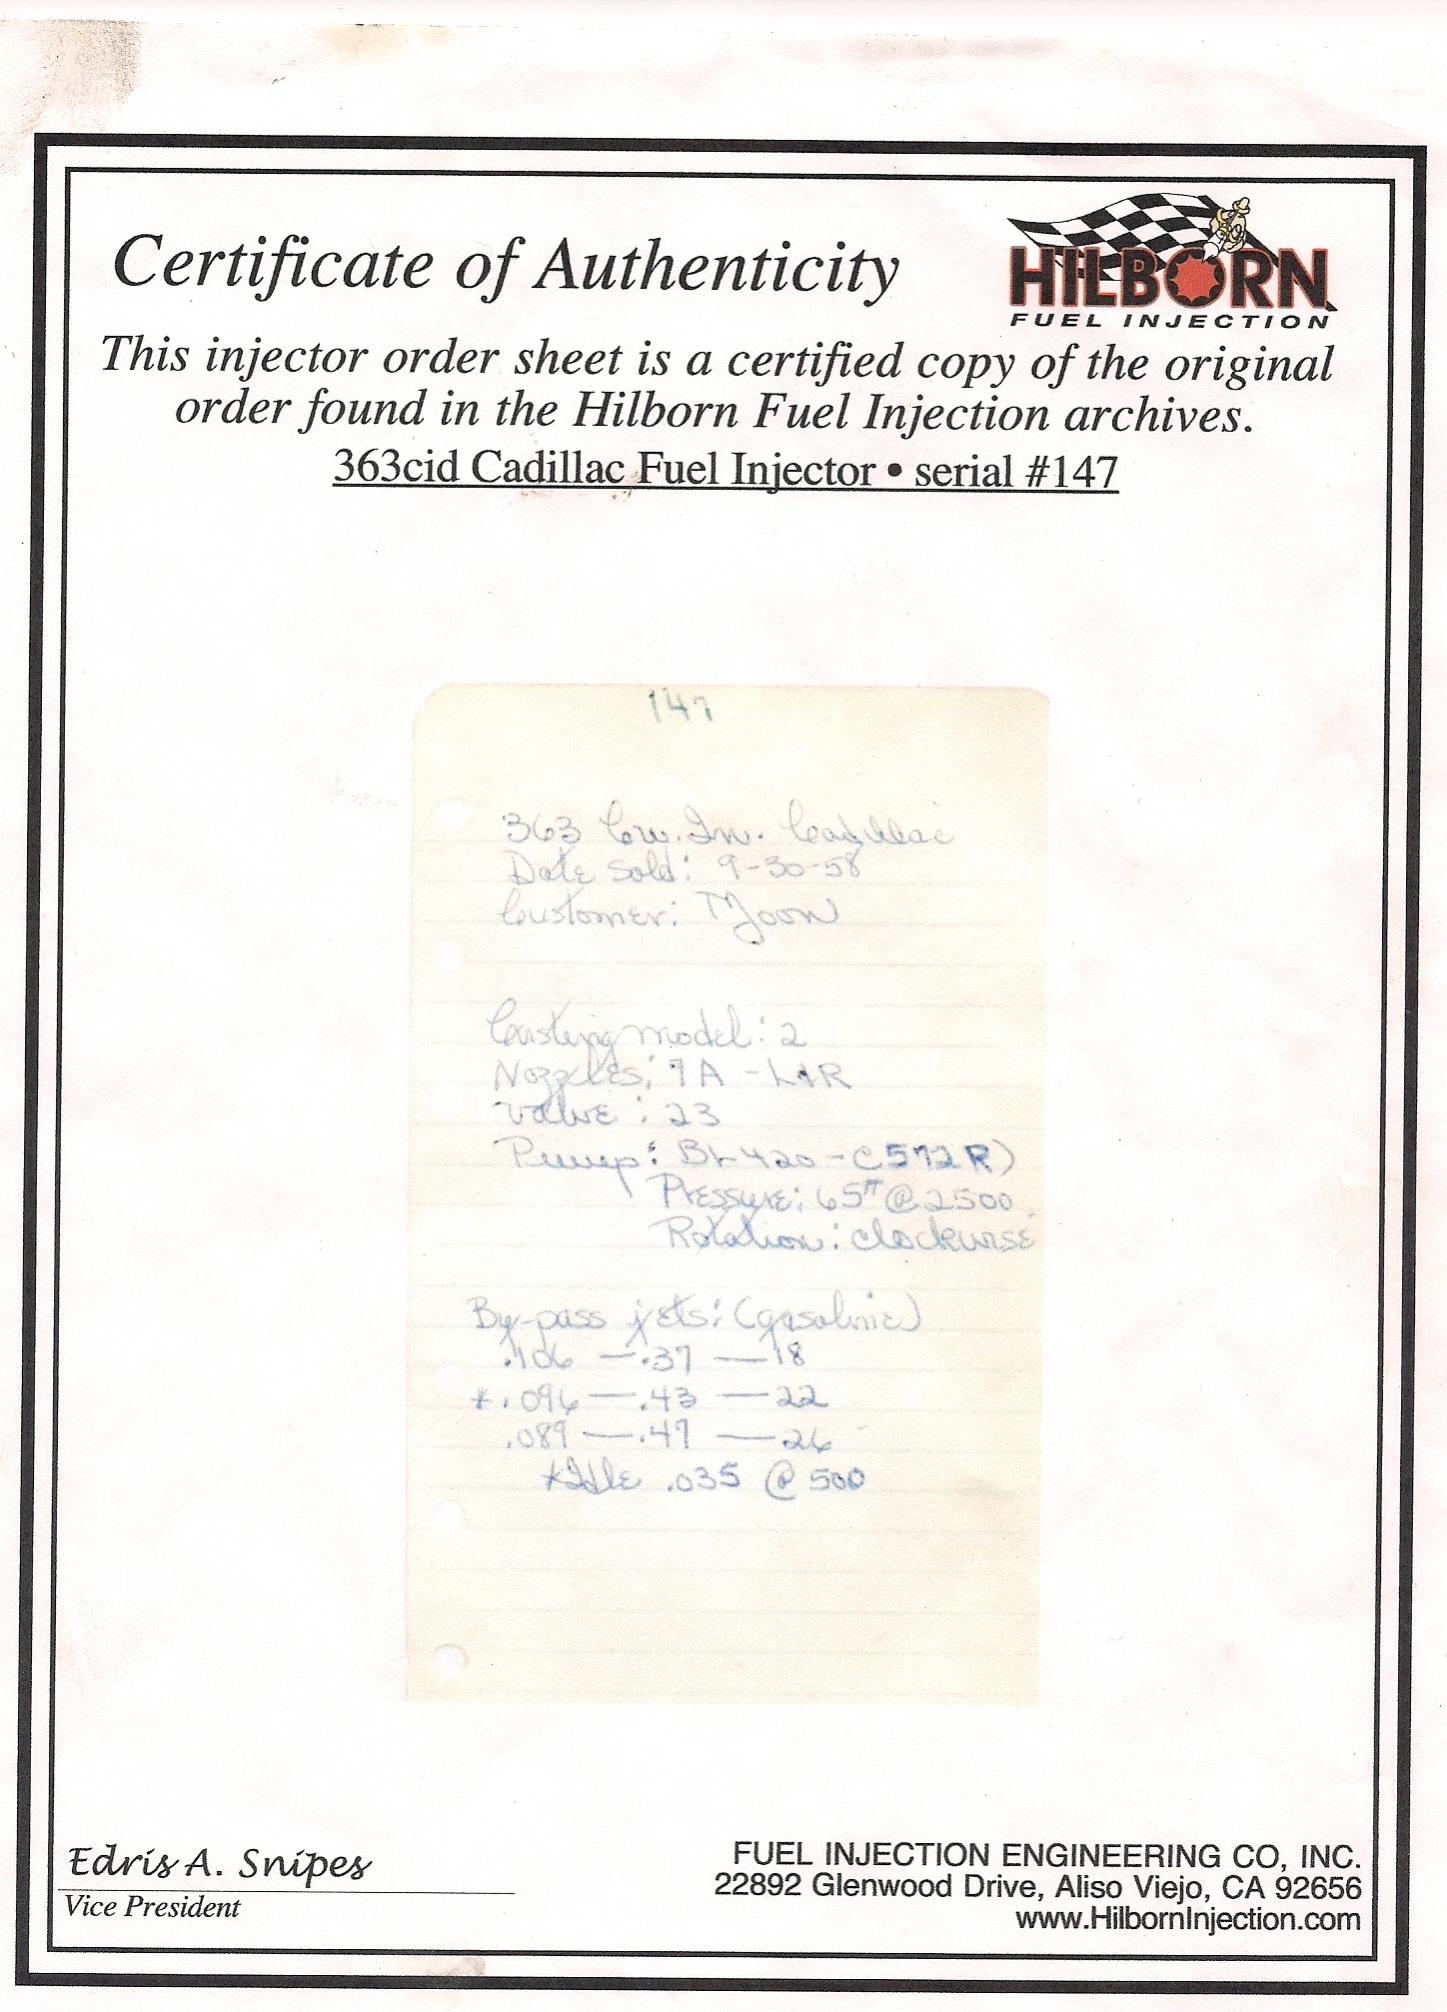 Certificate of Authenticity
HILBORN
FUEL INJECTION
This injector order sheet is a certified copy of the original
order found in the Hilborn Fuel Injection archives.
363cid Cadillac Fuel Injector • serial #147
147
363 Cu. In. Cadillac
Date Sold: 9-30-58
Customer: Moon
Casting model: 2
Nozzles: 7A - L&R
Valve: 23
Pump: 420 - C572R)
Pressure: 65# @ 2500
Rotation: clockwise
By-pass jets: (gasoline)
.106 — .37 — 18
*.096 — .43 — 22
.089 — .47 — 26
*Idle .035 @ 500
Edris A. Snipes
Vice President
FUEL INJECTION ENGINEERING CO, INC.
22892 Glenwood Drive, Aliso Viejo, CA 92656
www.HilbornInjection.com